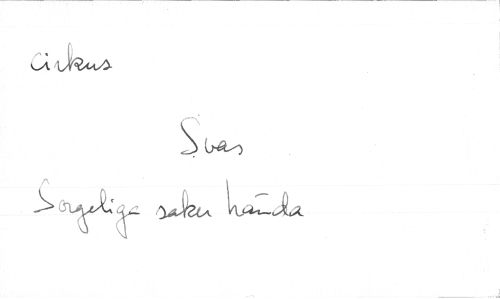 Cirkus
Svas
Sorgeliga saker hända